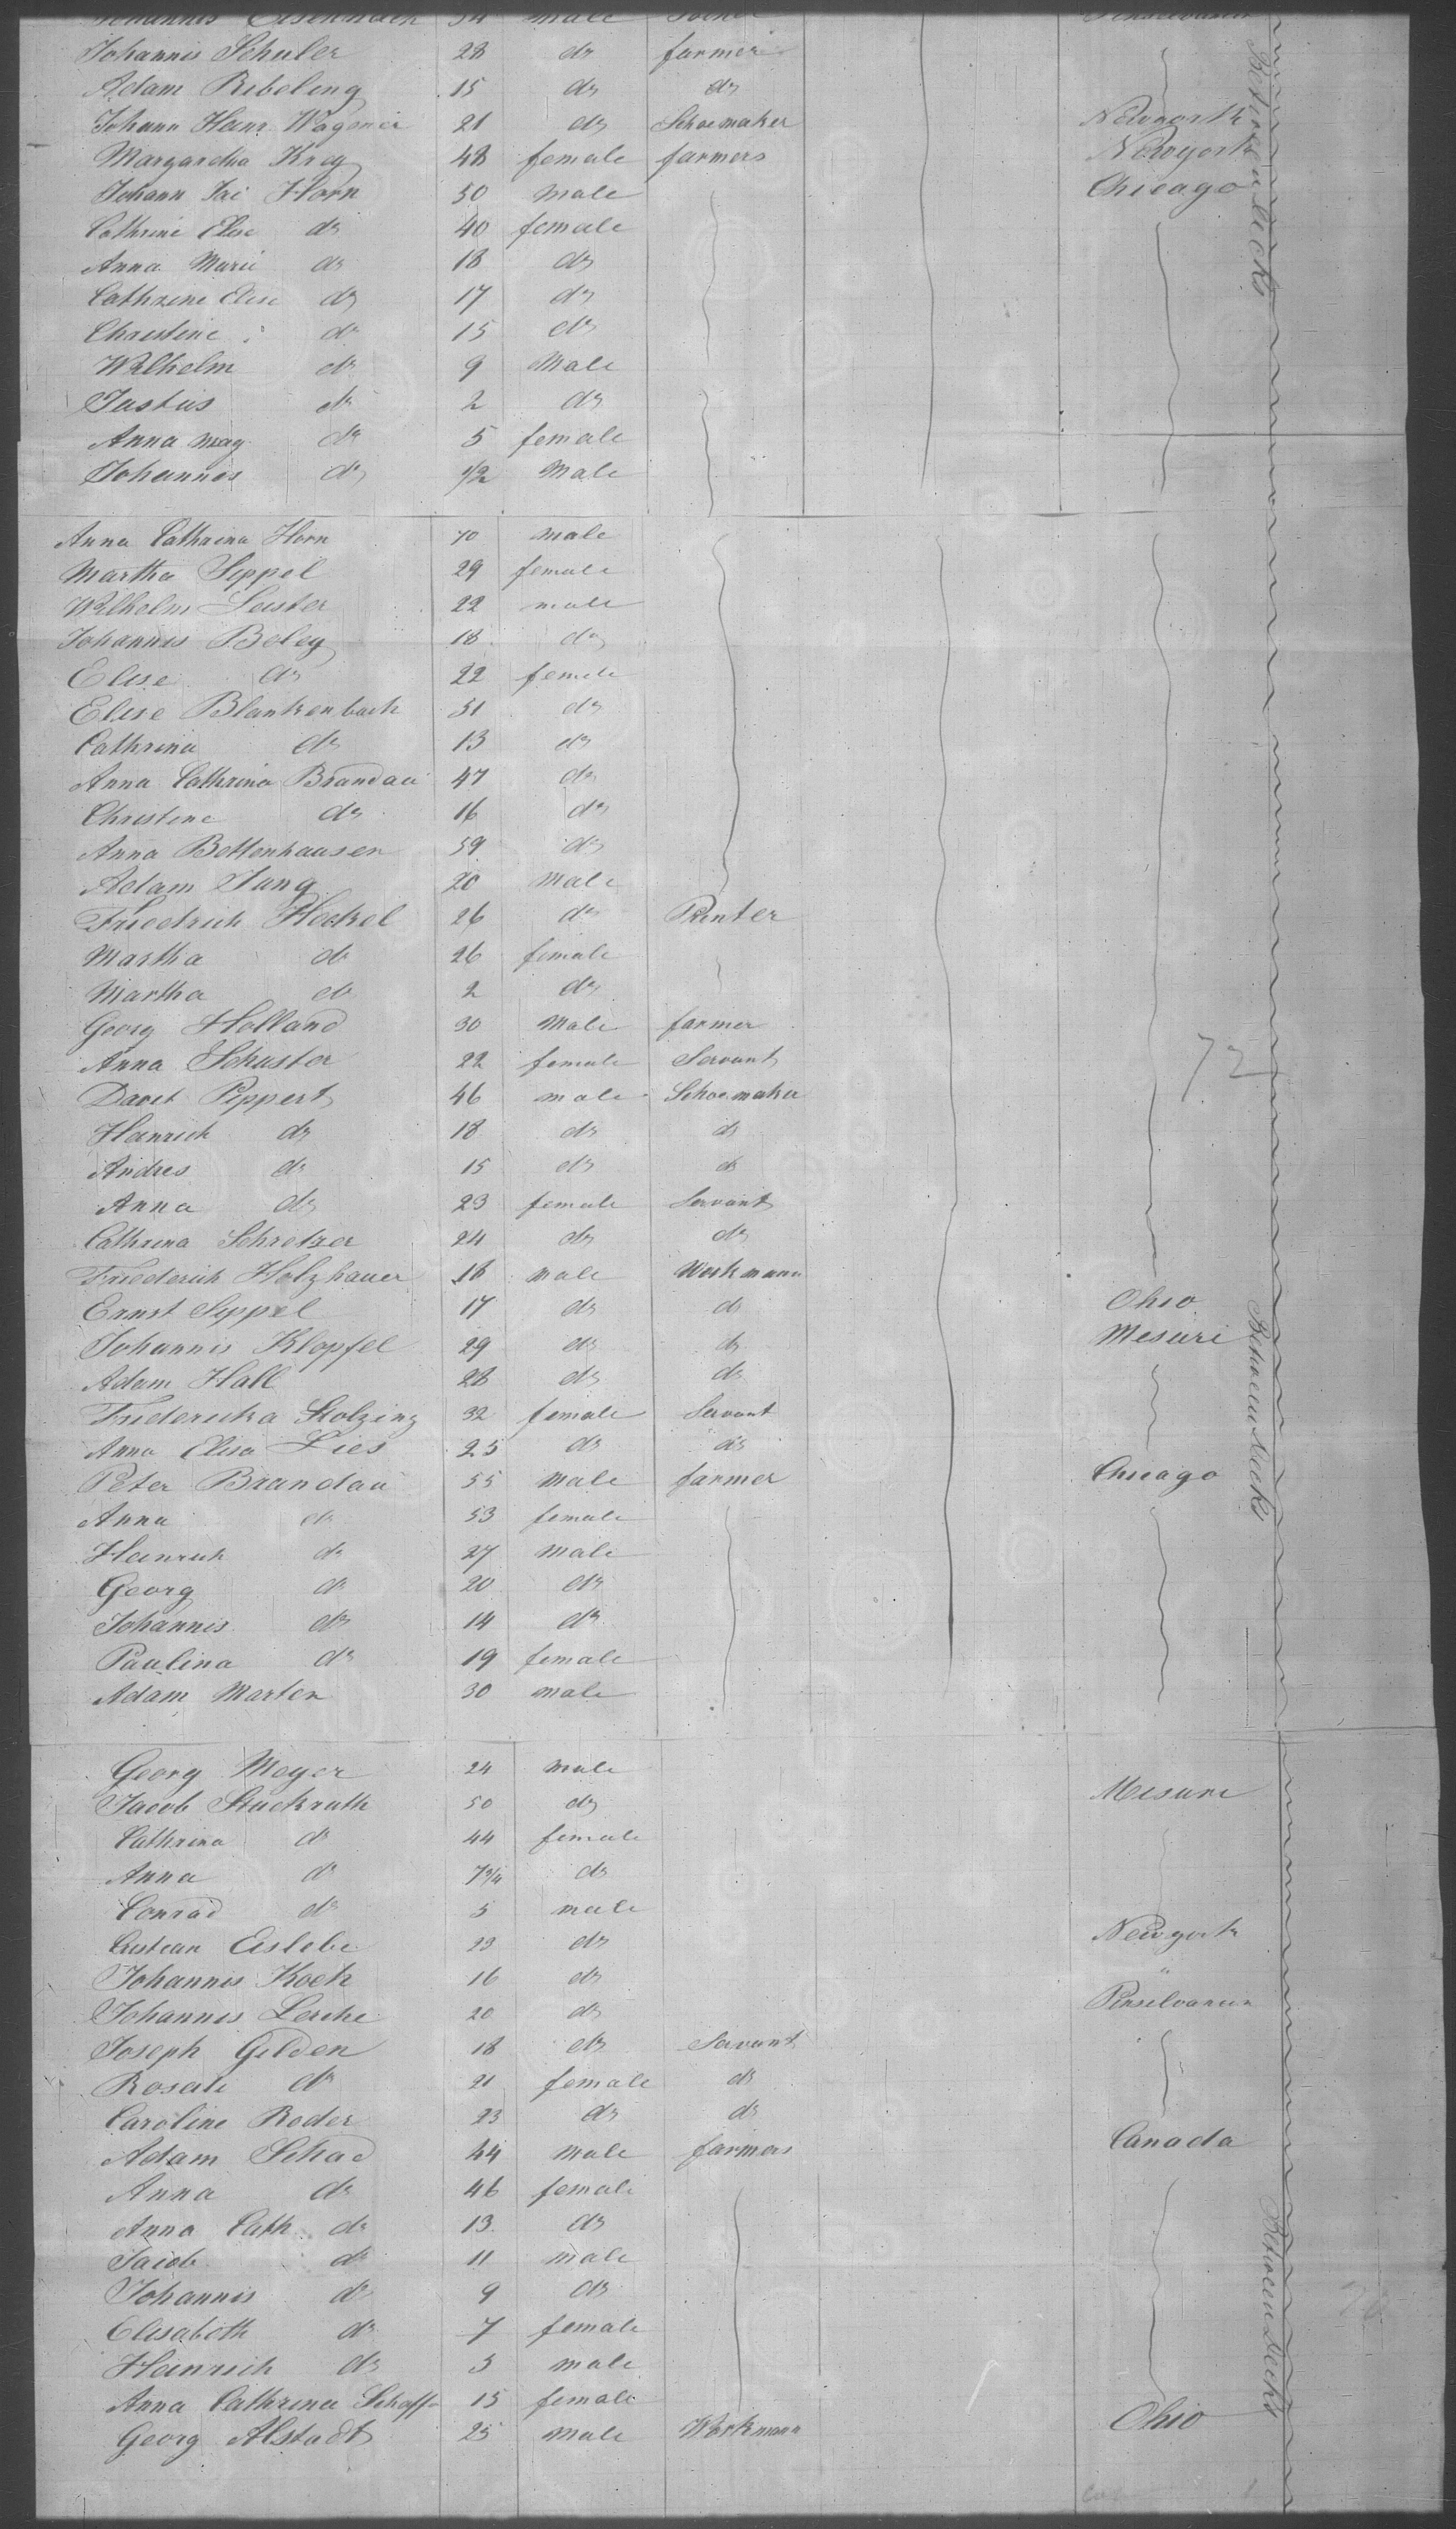 Johannis Schuler 28 do farmer
Adam Ribeling 15 do do
Johann Heinr Wagener 21 do Schoemaker Newyork
Margaretha Krey 48 female farmers Newyork
Johann Jac Horn 50 male Chicago
Cathrine Elise do 40 female
Anna Marie do 18 do
Cathrine Elise do 17 do
Christine do 15 do
Wilhelm do 9 Male
Justus do 2 do
Anna Mag do 5 female
Johannes do 1/2 Male
Anna Cathrina Horn 70 male
Martha Sippel 29 female
Wilhelm Leister 22 male
Johannes Beley 18 do
Elise do 22 female
Elise Blankenbach 51 do
Cathrina do 13 do
Anna Cathrina Brandau 47 do
Christine do 16 do
Anna Bettenhausen 59 do
Adam Jung 20 Male
Friedrich Heckel 26 do Printer
Martha do 26 female
Martha do 2 do
Georg Holland 30 Male farmer
Anna Schuster 22 female Servant 72
Davet Pippert 46 male Schoemaker
Heinrich do 18 do do
Andres do 15 do do
Anna do 23 female Servant
Cathrina Schretzer 24 do do
Friederich Holzhauer 18 male Workmann
Ernst Sippel 17 do do Ohio
Johannis Klopfel 29 do do Mesuri
Adam Hall 28 do do
Friedericka Stolzing 32 female Servant
Anna Elisa Lies 25 do do
Peter Brandau 55 Male farmer Chicago
Anna do 53 female
Heinrich do 27 Male
Georg do 20 do
Johannis do 14 do
Paulina do 19 female
Adam Marten 30 male
Between Decks
Georg Meyer 24 male
Jacob Stuckrath 50 do Mesuri
Cathrina do 44 female
Anna do 7 3/4 do
Conrad do 5 male
Cristian Eislebe 23 do Newyork
Johannis Koch 16 do "
Johannes Lerche 20 do Pinselvanien
Joseph Gelden 18 do Servant
Rosali do 21 female do
Caroline Roder 23 do do
Adam Schad 44 Male farmers Canada
Anna do 46 female
Anna Cath do 13 do
Jacob do 11 male
Johannis do 9 do
Elisabeth do 7 female
Heinrich do 3 male
Anna Cathrina Schaff 15 female
Georg Alstadt 25 Male Workmann Ohio
Between Decks